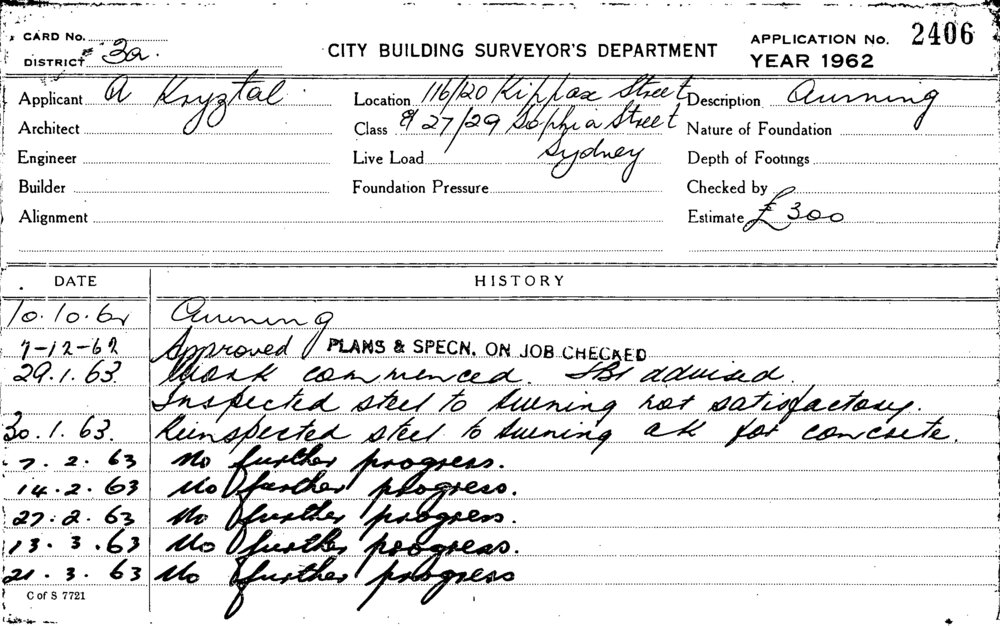 CARD No.
DISTRICT 3a.
CITY BUILDING SURVEYOR'S DEPARTMENT
APPLICATION No. 2406
YEAR 1962
Applicant A Kryztal
Location 116/20 Kippax Street
Description Awning
Architect
Class & 27/29 Sophia Street
Nature of Foundation
Engineer
Live Load Sydney
Depth of Footings
Builder
Foundation Pressure
Checked by
Alignment
Estimate £300
DATE HISTORY
10.10.62 Awning
7-12-62 Approved PLANS & SPECN. ON JOB CHECKED
29.1.63. Work commenced. advised.
Inspected steel to Awning not satisfactory.
30.1.63. Reinspected steel to Awning ok for concrete.
7.2.63 No further progress.
14.2.63 No further progress.
27.2.63 No further progress.
13.3.63 No further progress.
21.3.63 No further progress
C of S 7721